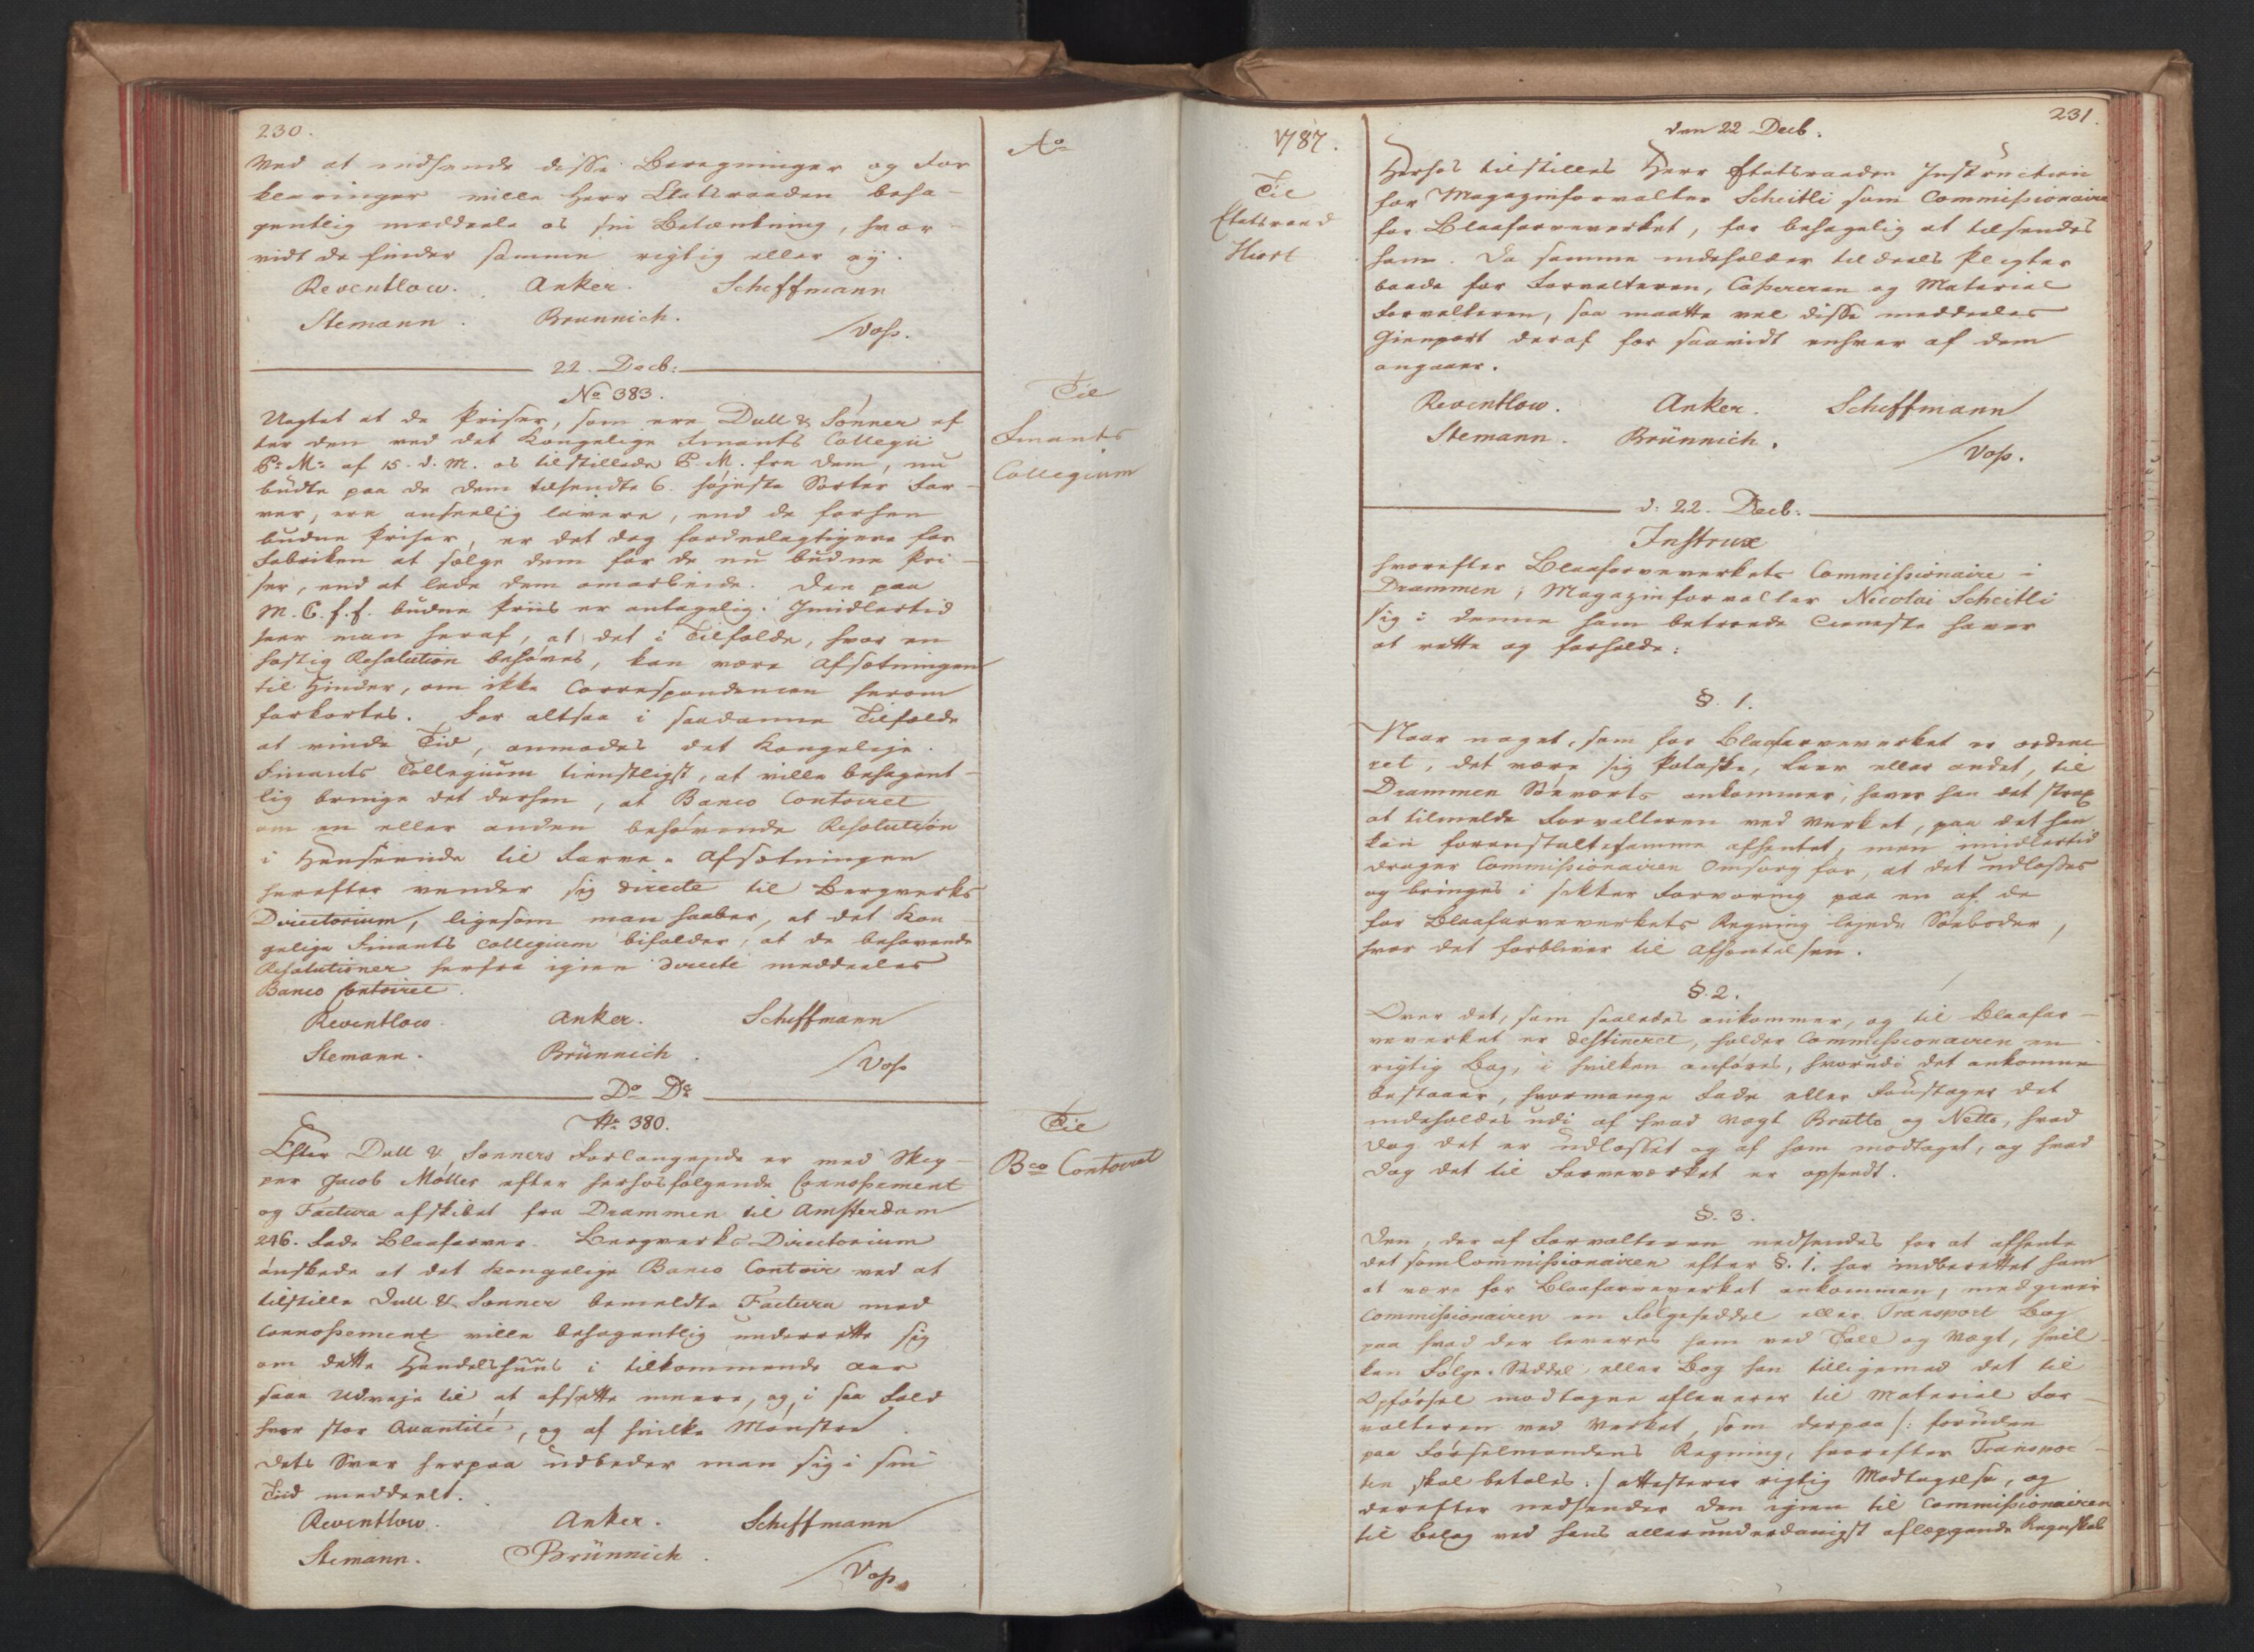 230.
Ved at indsende disse Beregninger og For
klaringer ville Herr Etatsraaden beha-
gentlig meddeele os sin Betænkning, hvor-
vidt de finder samme rigtig eller ey.
Reventlow. Anker. Scheffmann
Stemann. Brunnich.
/Voss.
22. Decb:
No 383.
Uagtet at de Priser, som ere Dull & Sønner ef
ter den ved det Kongelige Finants Collegii
P: M: af 15. d. M. os tilstillede P. M. fra dem, nu
budte paa de dem tilsendte 6. højeste Sorter Far-
ver, ere anseelig lavere, end de forhen
budne Priser, er det dog fordeelagtigere for
Fabriken at sælge dem for de nu budne Pri-
ser, end at lade dem omarbeide. Den paa
M. C. f. f. budne Priis er antagelig. Imidlertid
seer man heraf, at det i Tilfælde, hvor en
hastig Resolution behøves, kan være Afsætningen
til Hinder, om ikke Correspondencen herom
forkortes. For altsaa i saadanne Tilfælde
at vinde Tid, anmodes det Kongelige
Finants Collegium tienstligst, at ville behagent-
lig bringe det derhen, at Banco Contoiret
om en eller anden behøvende Resolution
i Henseende til Farve-Afsætningen
herefter vender sig directe til Bergverks
Directorium, ligesom man haaber, at det Kon-
gelige Finants Collegium bifalder, at de behøvende
Resolutioner herfra igien directe meddeeles
Banco Contoiret.
Reventlow. Anker. Scheffmann
Stemann. Brünnich.
/Voss
Do Do
No 380.
Efter Dull & Sønners Forlangende er med Skip-
per Jacob Møller efter hershosfølgende Connossement
og Factura afskibet fra Drammen til Amsterdam
246. Fade Blaafarver. Bergverks-Directorium
ønskede at det Kongelige Banco Contoir ved at
tilstille Dull & Sønner bemeldte Factura med
Connossement ville behagentlig underrette sig
om dette Handelshuus i tilkommende Aar
saae Udveje til at afsætte meere, og i saa Fald
hvor stor Quantité, og af hvilke Mønstre
Dets Svar herpaa udbeder man sig i sin
Tiid meddeelt.
Reventlow. Anker. Scheffmann
Stemann. Brünnich.
/Voss.
Ao
Til
Finants
Collegium
Til
Bco Contoiret
1787.
Til
Etatsraad
Hiort
231.
den 22 Decb.
Herhos tilstilles Herr Etatsraaden Instruction
for Magazinforvalter Scheitli som Commissionaire
for Blaafarveverket, for behagelig at tilsendes
ham. Da samme indeholder tildeels Pligter
baade for Forvalteren, Cassereren og Material
Forvalteren, saa maatte vel disse meddeeles
Gienpart deraf for saavidt enhver af dem
angaaer.
Reventlow. Anker. Scheffmann
Stemann. Brünnich.
/Voss.
d: 22. Decb:
Instrux
hvorefter Blaafarveverkets Commissionaire i
Drammen, Magazinforvalter Nicolai Scheitli
sig i denne ham betroede Tieneste haver
at rette og forholde:
§. 1.
Naar noget, som for Blaafarveverket er ordine
ret, det være sig Potaske, Leer eller andet, til
Drammen Søeværts ankommer, haver han det strax
at tilmelde Forvalteren ved Verket, paa det han
kan foranstalte samme afhentet, men imidlertid
drager Commissionairen Omsorg for, at det udlosses
og bringes i sikker Forvaring paa en af de
for Blaafarveverkets Regning lejede Søeboder,
hvor det forbliver til Afhentelsen.
§. 2.
Over det, som saaledes ankommer, og til Blaafar-
veverket er destineret, holder Commissionairen en
rigtig Bog, i hvilken anføres, hvorudi det ankomne
bestaaer, hvormange Fade eller Foustager det
indeholdes udi af hvad Vægt Brutto og Netto, hvad
Dag det er udlosset og af ham modtaget, og hvad
Dag det til Farveværket er opsendt.
§. 3.
Den, der af Forvalteren nedsendes for at afhente
det som Commissionairen efter §. 1. har indberettet ham
at være for Blaafarveverket ankommen, medgiver
Commissionairen en Følgeseddel eller Transport Bog
paa hvad der leveres ham ved Tall og Vægt, hvil-
ken Følge-Seddel eller Bog han tilligemed det til
Opførsel modtagne afleverer til Material For-
valteren ved Verket, som derpaa /: foruden
paa Førselmandens Regning, hvorefter Transpor-
ten skal betales :/ attesterer rigtig Modtagelse, og
derefter nedsender den igien til Commissionairen
til Belæg ved hans allerunderdanigst aflæggende Regnskab